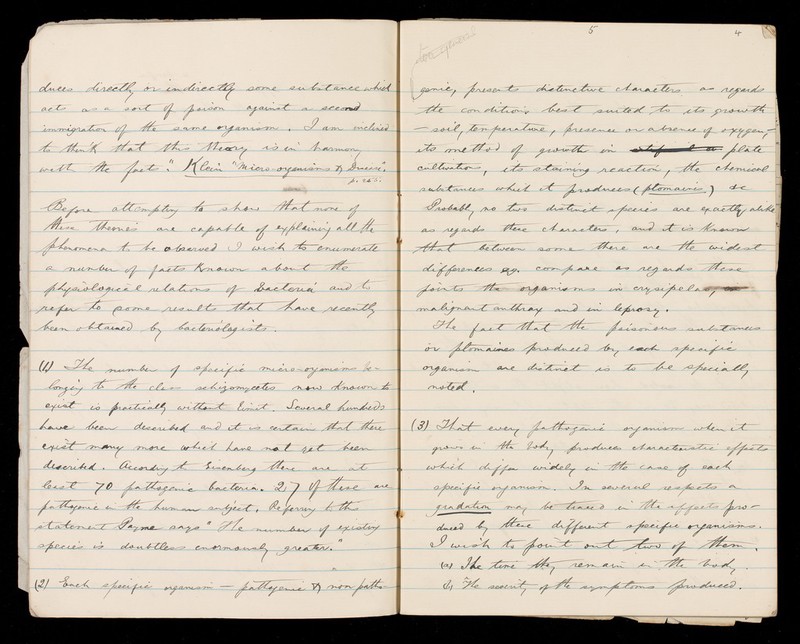 duces directly or indirectly some substance which
acts as a sort of poison against a second
immigration of the same organism. I am inclined
to think that this theory is in harmony
with the facts." Klein "Micro-organisms & Disease".
Before attempting to show that none of
these theories are capable of explaining all the
phenomena to be observed I wish to enumerate
a number of facts known about the
physiological relations of bacteria and to
refer to some results that have recently
been obtained by bacteriologists.
(1) The number of specific micro-organisms be-
longing to the class schizomycetes now known to
exist is practically without limit. Several hundreds
have been described and it is certain that there
exist many more which have not yet been
described. According to Eisenberg there are at
least 70 pathogenic bacteria. 27 of these are
pathogenic in the human subject. Referring to this
statement Payne says "The number of existing
species is doubtless enormously greater."
(2) Each specific organism – pathogenic & non patho-
5
4
genic, presents distinctive characters as regards
the conditions best suited to its growth
– soil, temperature, presence or absence of oxygen, –
its method of growth in plate
cultivation, its staining reaction, the chemical
substances which it produces (ptomaines) &c
Probably no two distinct species are exactly alike
as regards these characters, and it is known
that between some there are the widest
differences eg. compare as regards these
points the organisms in erysipelas,
malignant anthrax and in leprosy.
The fact that the poisonous substances
or ptomaines produced by each specific
organism are distinct is to be specially
noted.
(3) That every pathogenic organism when it
grows in the body produces characteristic effects
which differ widely in the case of each
specific organism. In several respects a
gradation may be traced in the effects pro-
duced by these different specific organisms.
I wish to point out two of them.
(a) The time they remain in the body.
(b) The severity of the symptoms produced.